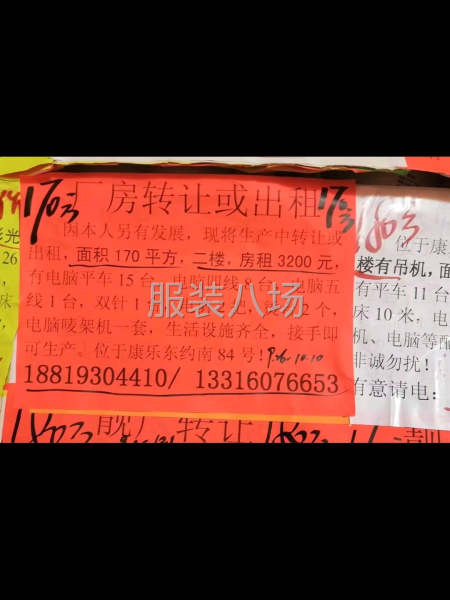 厂房转让或出租
170方
170方
因本人另有发展,现将生产中转让或
出租,面积170平方,二楼,房租3200元,
有电脑平车15台,电脑四线8台,电脑五
线1台,双针1
个,
电脑唛架机一套,生活设施齐全,接手即
可生产。位于康乐东约南84号!
18819304410/ 13316076653
服装八场
180方
位于康
楼有吊机,面
有平车11台
床10米,电
机、电脑等配
非诚勿扰!
有意请电:
彩光
26
床
180方
靓厂转让
180方